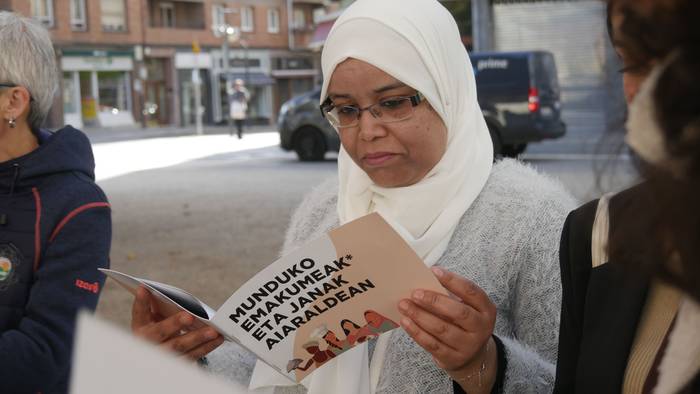 prime
MUNDUKO
EMAKUMEAK*
ETA JANAK
AIARALDEAN
izas